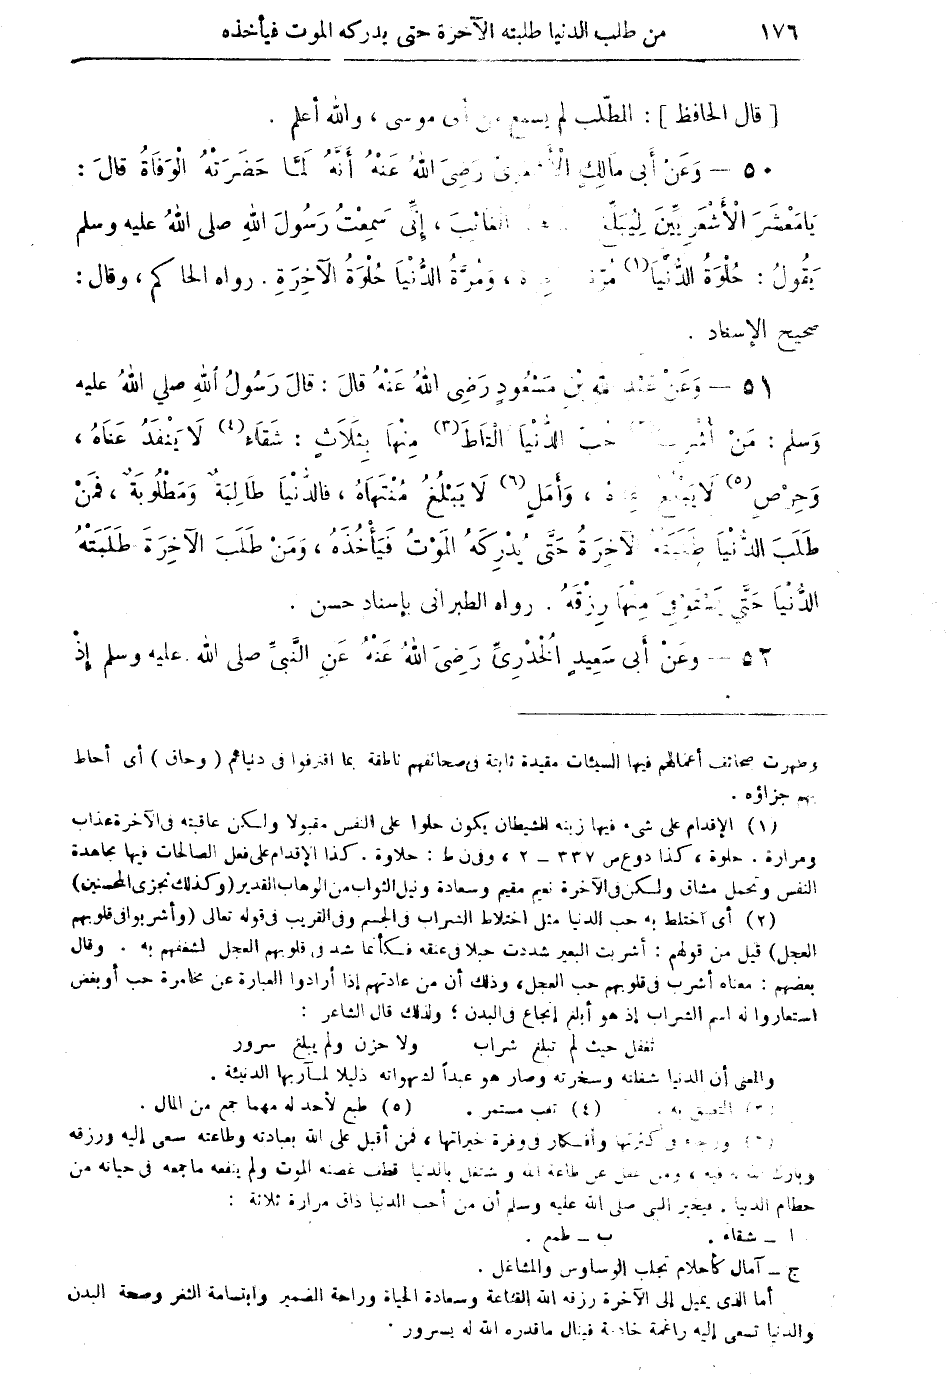 ١٧٦ من طلب الدنيا طلبته الآخرة حتى يدركه الموت فيأخذه
[ قال الحافظ ] : المطّلب لم يسمع من أبى موسى ، والله أعلم .
٥٠ — وَعَنْ أَبى مَالِكٍ الْأَشْعَرِىِّ رَضِىَ اللهُ عَنْهُ أَنَّهُ لَمَّا حَضَرَتْهُ الْوَفَاةُ قالَ :
يَامَعْشَرَ الْأَشْعَرِيِّينَ لِيُبَلِّغِ الغَائبَ ، إِنِّى سَمِعْتُ رَسُولَ اللهِ صلى اللهُ عليه وسلم
يَقُولُ : حُلْوَةُ الدُّنْيَا(١) مُرَّةُ ، وَمُرَّةُ الدُّنْيَا حُلْوَةُ الآخِرَةِ . رواه الحاكم ، وقال :
صحيح الإسناد .
٥١ — وَعَنْ عَبْدِ اللهِ بْنِ مَسْعُودٍ رَضِىَ اللهُ عَنْهُ قالَ : قالَ رَسُولُ اللهِ صلي اللهُ عليه
وَسلم : مَنْ أُشْرِبَ(٢) حُبَّ الدُّنْيَا الْتَاطَ(٣) مِنْهَا بِثَلَاثٍ : شَقَاءٍ(٤) لَا يَنْفَدُ عَنَاهُ ،
وَحِرْصٍ(٥) لَا يَبْلُغُ غِنَاهُ ، وَأَمَلٍ(٦) لَا يَبْلُغُ مُنْتَهَاهُ ، فالدُّنْيَا طَالِبَةٌ وَمَطْلُوبَةٌ ، فَمَنْ
طَلَبَ الدُّنْيَا طَلَبَتْهُ الآخِرَةُ حَتَّى يُدْرِكَهُ المَوْتُ فَيَأْخُذَهُ ، وَمَنْ طَلَبَ الآخِرَةَ طَلَبَتْهُ
الدُّنْيَا حَتَّى يَسْتَوْفِىَ مِنْهَا رِزْقَهُ . رواه الطبرانى بإسناد حسن .
٥٢ — وعَنْ أَبى سَعِيدٍ الْخُدْرِىِّ رَضِىَ اللهُ عَنْهُ عَنِ النَّبِىِّ صلى الله عليه وسلم إِذْ
وظهرت صحائف أعمالهم فيها السيئات مقيدة ثابتة فى صحائفهم ناطقة بما اقترفوا فى دنياهم ( وحاق ) أى أحاط
بهم جزاؤه .
(١) الإقدام على شىء فيها زينه الشيطان يكون حلوا على النفس مقبولا ولكن عاقبته فى الآخرة عذاب
ومرارة . حلوة ، كذا دوع ص ٣٣٧ — ٢ ، وفى ن ط : حلاوة . كذا الإقدام على فعل الصالحات فيها مجاهدة
النفس وتحمل مشاق ولكن فى الآخرة نعيم مقيم وسعادة ونيل الثواب من الوهاب القدير ( وكذلك نجزى المحسنين )
(٢) أى اختلط به حب الدنيا مثل اختلاط الشراب فى الجسم وفى الغريب فى قوله تعالى ( وأشربوا فى قلوبهم
العجل ) قيل من قولهم : أشربت البعير شددت حبلا فى عنقه فكأنما شد فى قلوبهم العجل لشغفهم به . وقال
بعضهم : معناه أشرب فى قلوبهم حب العجل ، وذلك أن من عادتهم إذا أرادوا العبارة عن مخامرة حب أو بغض
استعاروا له اسم الشراب إذ هو أبلغ إنجاع فى البدن ؛ ولذلك قال الشاعر :
تغلغل حيث لم تبلغ شراب ولا حزن ولم يبلغ سرور
والمعنى أن الدنيا شغلته وسخرته وصار هو عبداً لشهواته ذليلا لمآربها الدنيئة .
(٣) التصق به . (٤) تعب مستمر . (٥) طمع لأحد له مهما جمع من المال .
(٦) ورجاء فى كثرتها وأفكار فى وفرة خيراتها ، فمن أقبل على الله بعبادته وطاعته سعى إليه ورزقه
وبارك الله له فيه ، ومن غفل عن طاعة الله واشتغل بالدنيا قطف غصنه الموت ولم ينفعه ماجمعه فى حياته من
حطام الدنيا . فيخبر النبى صلى الله عليه وسلم أن من أحب الدنيا ذاق مرارة ثلاثة :
ا — شقاء . ب — طمع .
ج — آمال كأحلام تجلب الوساوس والمشاغل .
أما الذى يميل إلى الآخرة رزقه الله القناعة وسعادة الحياة وراحة الضمير وابتسامة الثغر وصحة البدن
والدنيا تسعى إليه راغمة خادمة فينال ماقدره الله له بسرور .